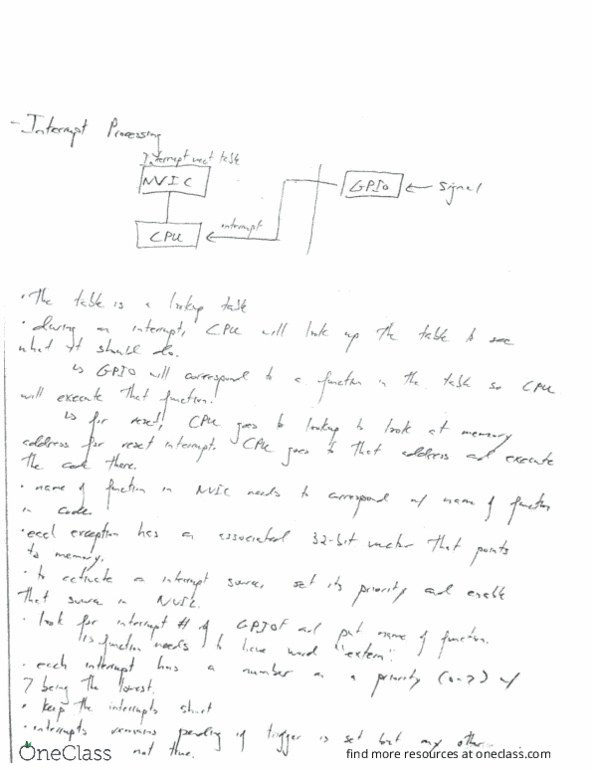 - Interrupt Processing
Interrupt vect table
NVIC
GPIO
signal
CPU
interrupt
• The table is a lookup table
• during an interrupt, CPU will look up the table to see
what it should do.
↳ GPIO will correspond to a function in the table so CPU
will execute that function.
↳ for reset, CPU goes to lookup to look at memory
address for reset interrupt. CPU goes to that address and execute
the code there.
• name of function in NVIC needs to correspond w/ name of function
in code.
• each exception has an associated 32-bit vector that points
to memory.
• to activate a interrupt source, set its priority and enable
that source in NVIC.
• look for interrupt # of GPIOF and put name of function.
↳ function needs to have word "extern".
• each interrupt has a number as a priority (0-7) w/
7 being the lowest.
• keep the interrupts short
• interrupts remains pending if trigger is set but any other
not true.
OneClass
find more resources at oneclass.com